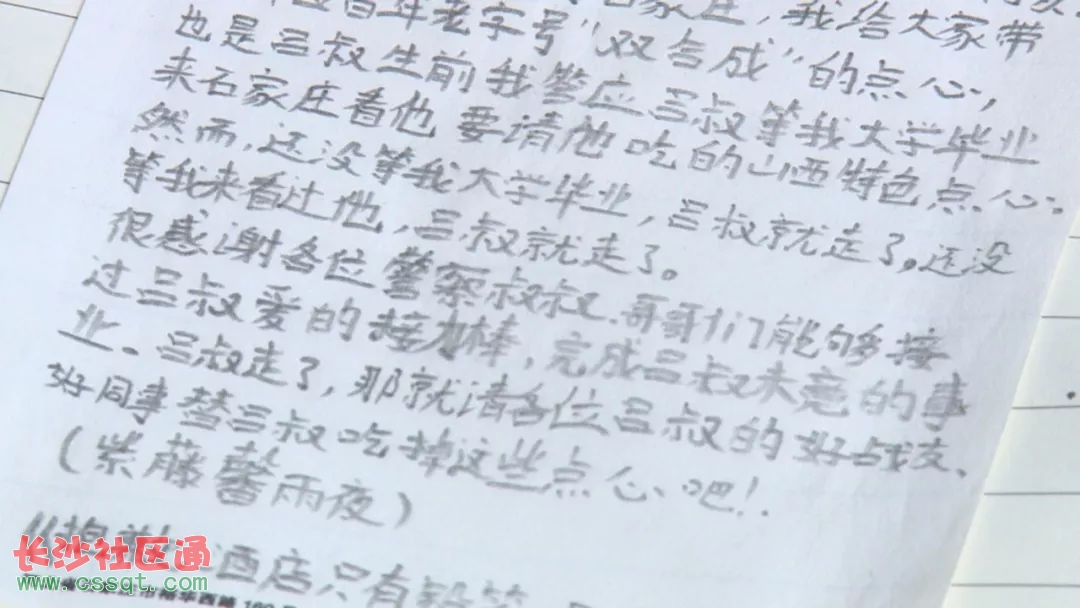 百年老字号"双合成"的点心,
家庄,我给大家带
也是吕叔生前我答应吕叔等我大学毕业
来石家庄看他 要请他吃的山西特色点心。
然而,还没等我大学毕业,吕叔就走了。还没
等我来看过他,吕叔就走了。
很感谢各位警察叔叔、哥哥们能够接
过吕叔爱的接力棒,完成吕叔未竟的事
业。吕叔走了,那就请各位吕叔的好战友、
好同事替吕叔吃掉这些点心吧!!
(紫藤馨雨夜)
酒店只有铅笔
长沙社区通
www.cssqt.com